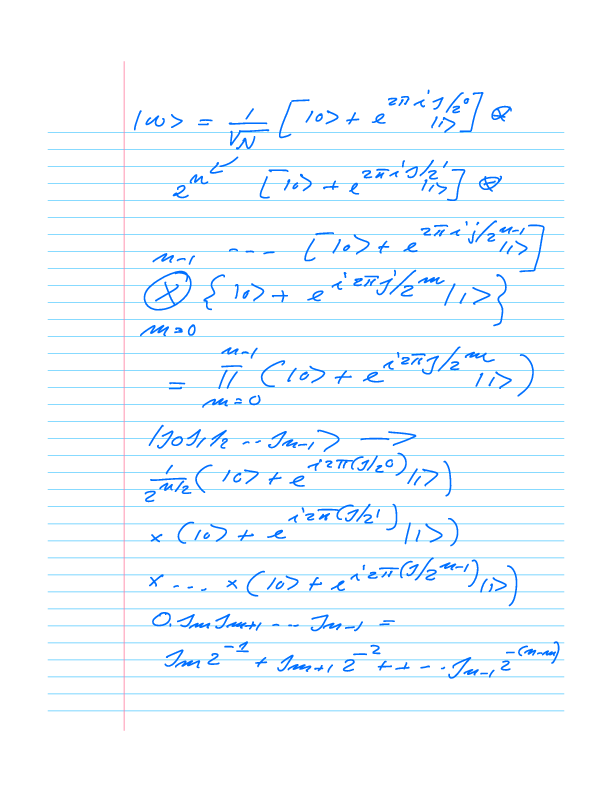 |w> = 1/√N [ |0> + e^{2πi J/2^0} |1> ] ⊗
2^n [ |0> + e^{2πi J/2^1} |1> ] ⊗
--- [ |0> + e^{2πi j/2^{n-1}} |1> ]
n-1 ⊗ m=0 { |0> + e^{i2πj/2^m} |1> }
= n-1 Π m=0 ( |0> + e^{i2πJ/2^m} |1> )
|J0 J1 J2 .. Jn-1> →
1/2^{n/2} ( |0> + e^{i2π(J/2^0)} |1> )
× ( |0> + e^{i2π(J/2^1)} |1> )
× ... × ( |0> + e^{i2π(J/2^{n-1})} |1> )
0.Jm Jm+1 --- Jn-1 =
Jm 2^{-1} + Jm+1 2^{-2} + + -.. Jn-1 2^{-(n-m)}